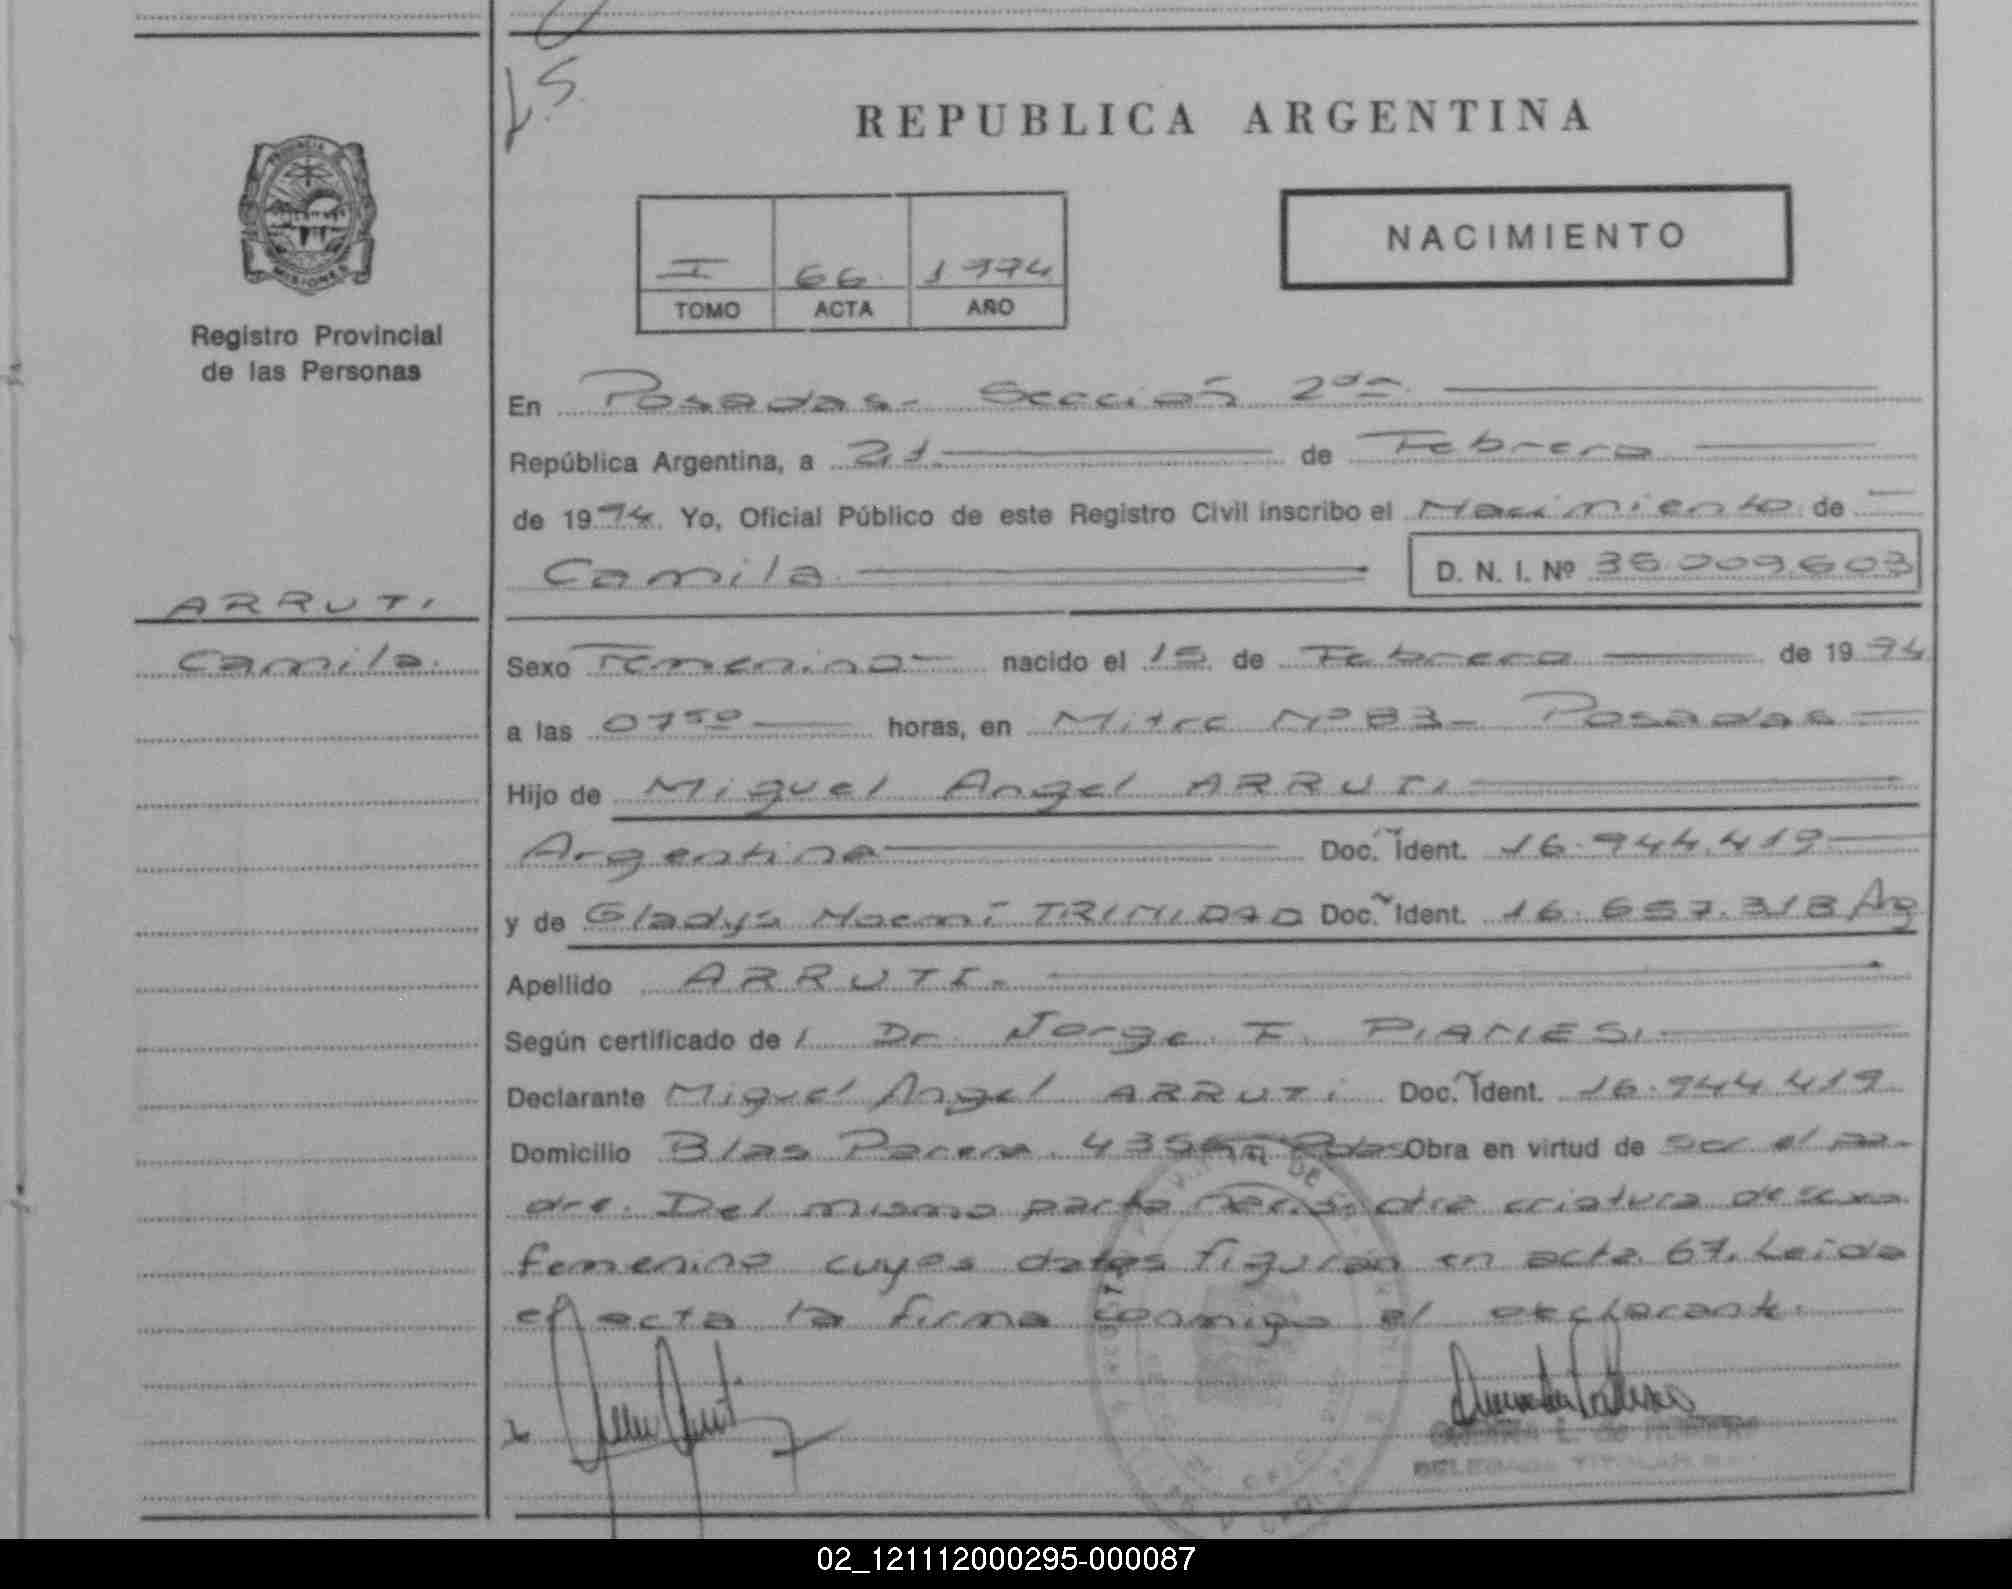 LS.
REPUBLICA ARGENTINA
NACIMIENTO
I 66 1994
TOMO ACTA AÑO
PROVINCIA DE
MISIONES
Registro Provincial
de las Personas
En Posadas - Sección 2da
República Argentina, a 21 de Febrero
de 1994. Yo, Oficial Público de este Registro Civil inscribo el Nacimiento de
Camila D. N. I. Nº
ARRUTI
Camila.
Sexo Femenino - nacido el 15 de Febrero de 1994
a las 07 50 horas, en Mitre Nº 83 - Posadas
Hijo de Miguel Angel ARRUTI
Argentina Doc. Ident. 16.944.419
y de Gladys Noemí TRINIDAD Doc. Ident. 16.657.318 Arg
Apellido ARRUTI.
Según certificado de l Dr. Jorge E. PIANESI
Declarante Miguel Angel ARRUTI Doc. Ident. 16.944.419
Domicilio Blas Parera Pdas Obra en virtud de ser el pa-
dre. Del mismo parto nació otra criatura de sexo
femenino cuyos datos figuran en acta 67. Leida
el acta la firma conmigo el declarante.
DELEGADA TITULAR
02_121112000295-000087